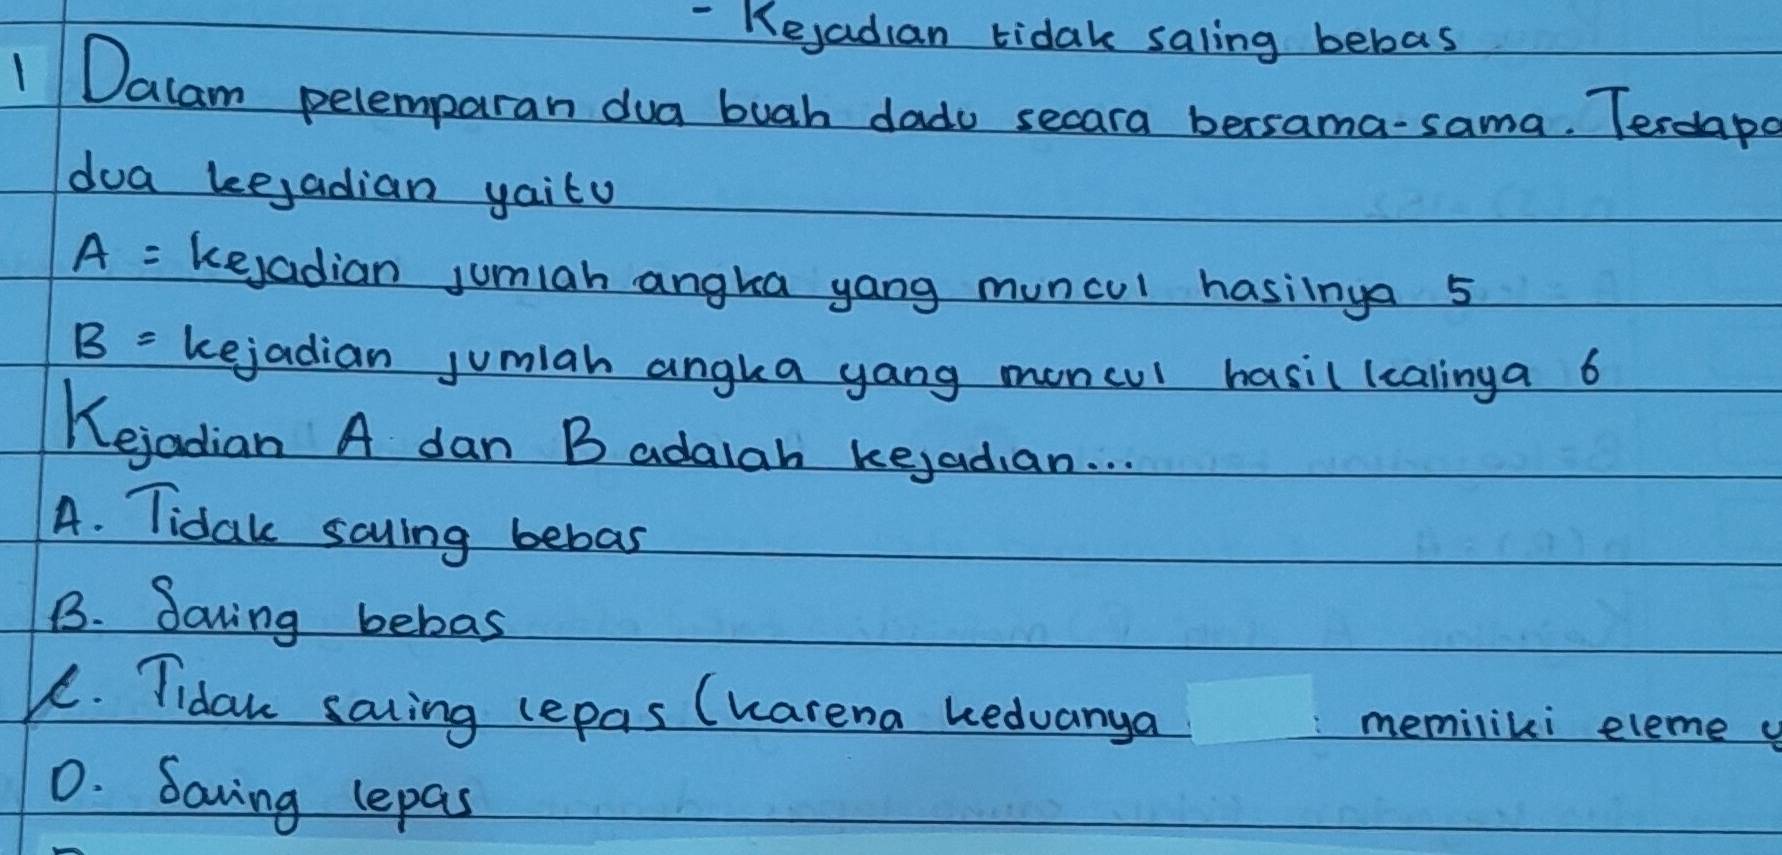 - Kejadian tidak saling bebas
1 Dalam pelemparan dua buah dadu secara bersama-sama. Terdapa
dua kejadian yaitu
A = kejadian jumlah angka yang muncul hasilnya 5
B = kejadian jumlah angka yang muncul hasil kalinya 6
Kejadian A dan B adalah kejadian...
A. Tidak saling bebas
B. Saling bebas
C. Tidak saling lepas (karena keduanya memiliki eleme y
D. Saling lepas